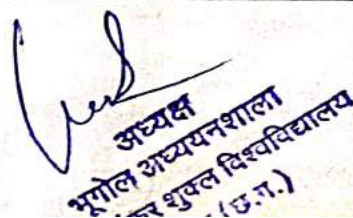 अध्यक्ष
भूगोल अध्ययनशाला
शुक्ल विश्वविद्यालय
(छ.ग.)